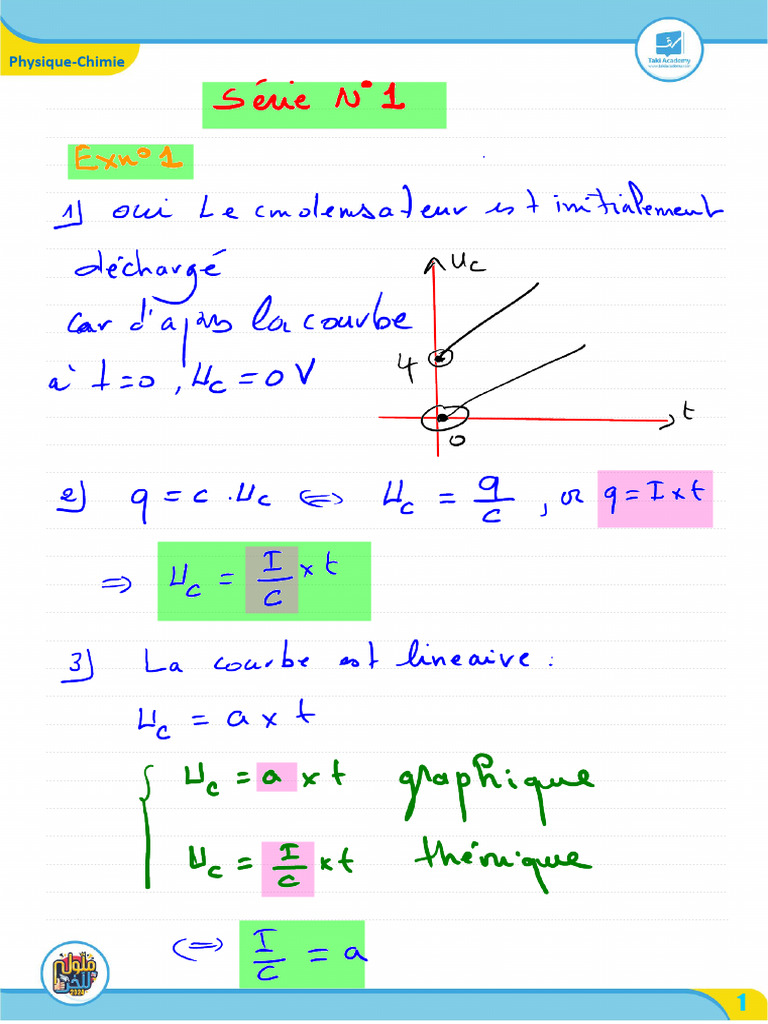 Physique-Chimie
Taki Academy
www.takiacademy.com
Série N°1
Exn°1
1) oui Le condensateur est initialement
déchargé
Car d'après la courbe
à t=0, Uc = 0V
Uc
4
0
t
2) q = c . Uc <=> Uc = q/c , or q = I x t
=> Uc = I/C x t
3) La courbe est lineaire :
Uc = a x t
Uc = a x t graphique
Uc = I/C x t théorique
<=> I/C = a
2024
1